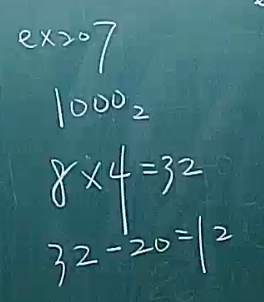 ex207
1000₂
8×4=32
32-20=12